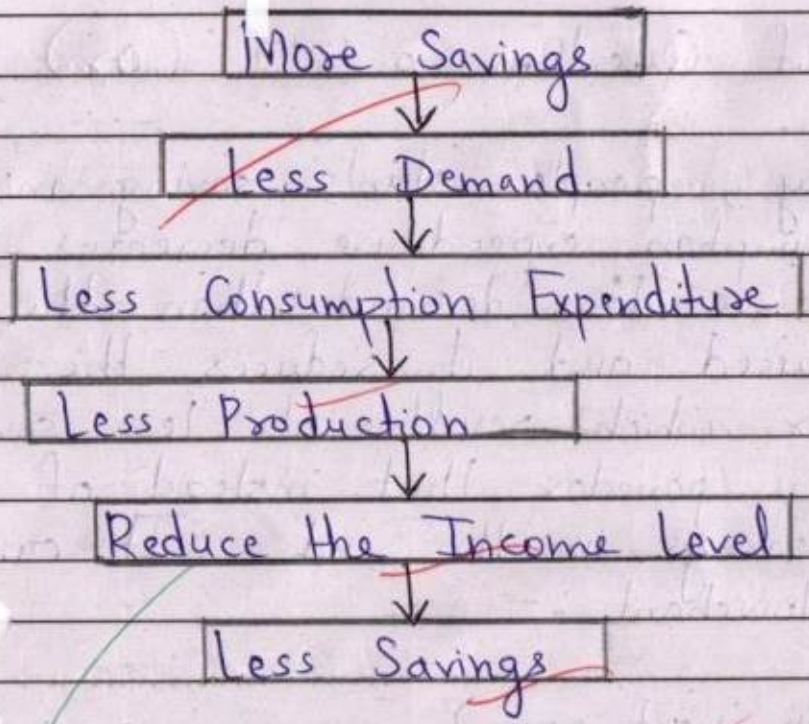 More Savings
Less Demand
Less Consumption Expenditure
Less Production
Reduce the Income Level
Less Savings